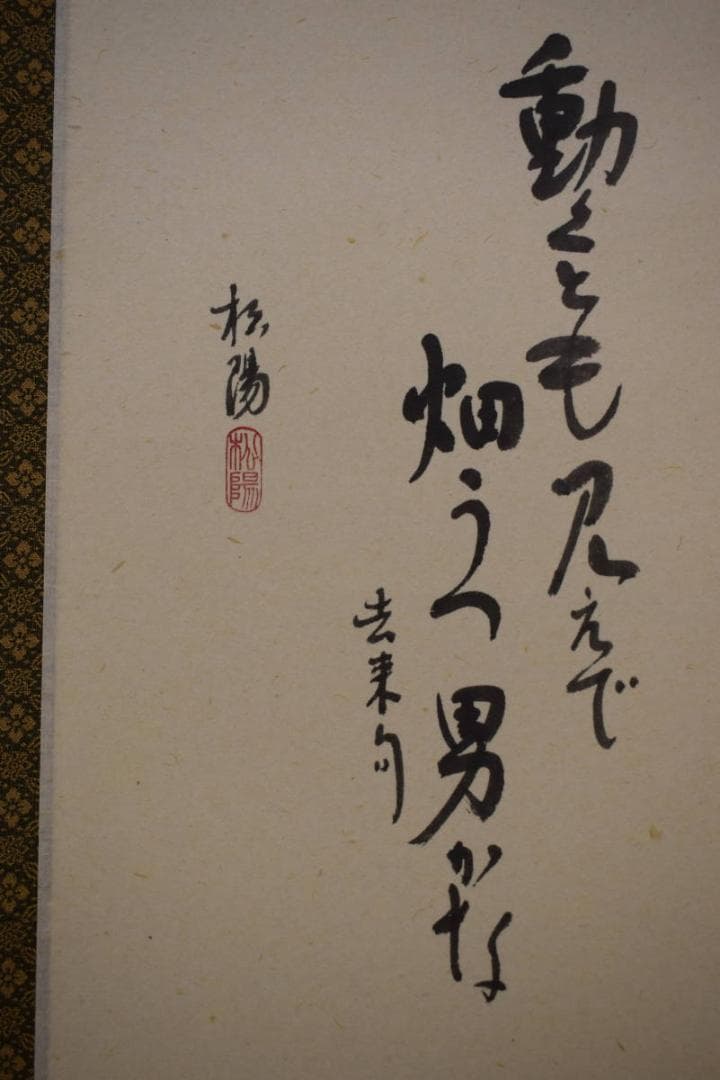 動くとも見えで
畑うつ男かな
去来句
松陽
松陽